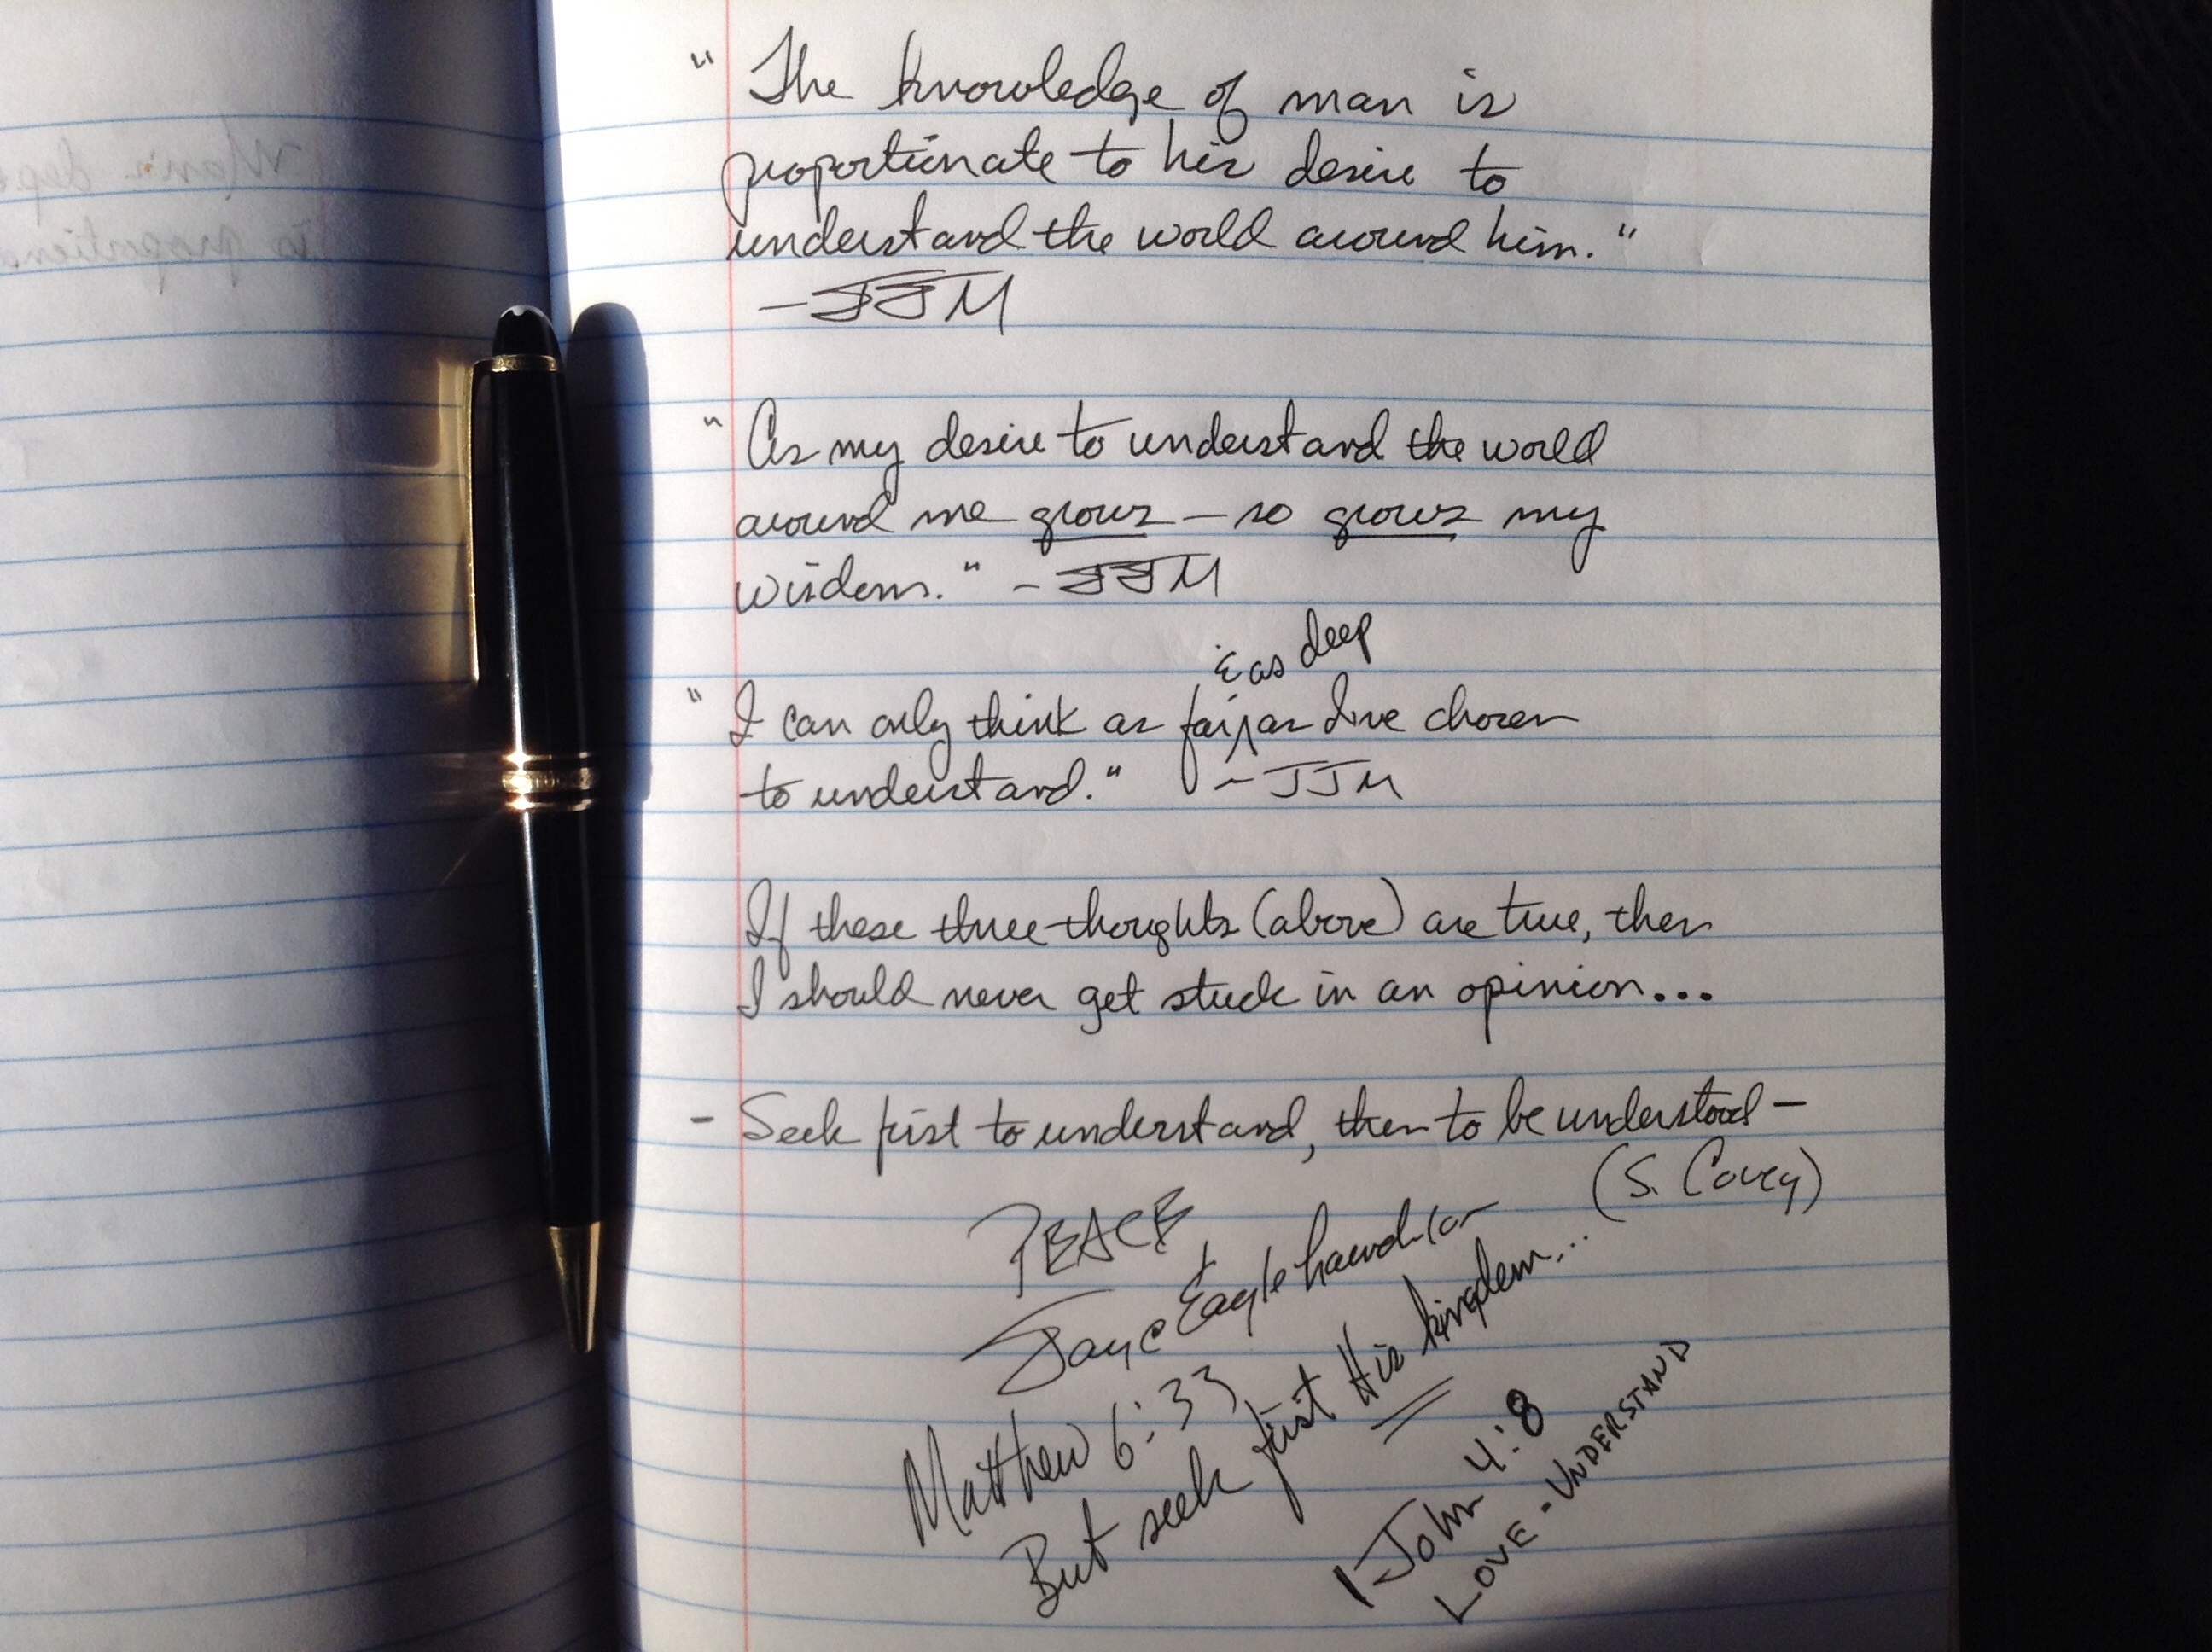 "The knowledge of man is
proportionate to his desire to
understand the world around him."
- JJM
"As my desire to understand the world
around me grows - so grows my
wisdom." - JJM
& as deep
"I can only think as far, as I've chosen
to understand." - JJM
If these three thoughts (above) are true, then
I should never get stuck in an opinion...
- Seek first to understand, then to be understood -
(S. Covey)
PEACE
Matthew 6:33
But seek first His kingdom...
1 John 4:8
LOVE - UNDERSTAND